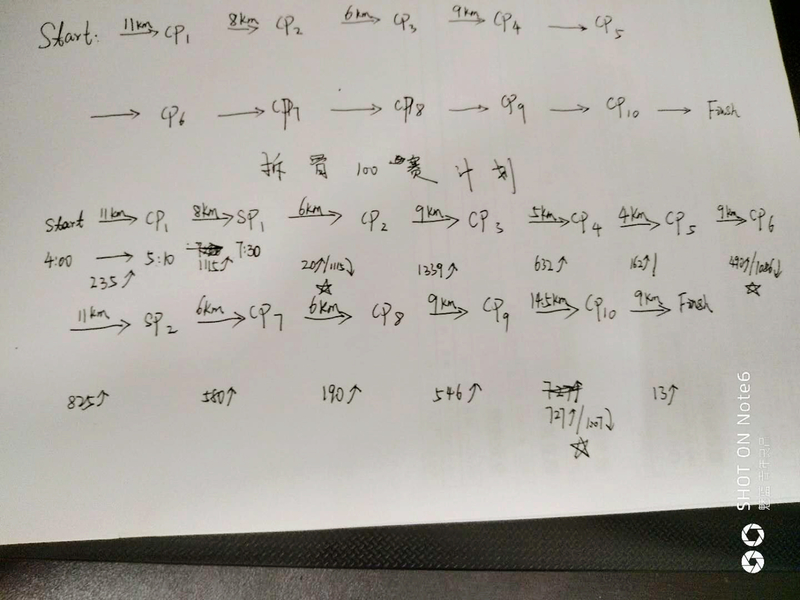 Start: 11km CP1 8km CP2 6km CP3 9km CP4 CP5
CP6 CP7 CP8 CP9 CP10 Finish
100 赛 计 划
Start 11km CP1 8km SP1 6km CP2 9km CP3 5km CP4 4km CP5 9km CP6
4:00 5:10 7:30
235↑ 1115↑ 20↑/1115↓ 1339↑ 632↑ 162↑/ 490↑/1086↓
11km SP2 6km CP7 6km CP8 9km CP9 14.5km CP10 9km Finish
825↑ 580↑ 190↑ 546↑ 727↑ 13↑
727↑/1207↓
SHOT ON Note6